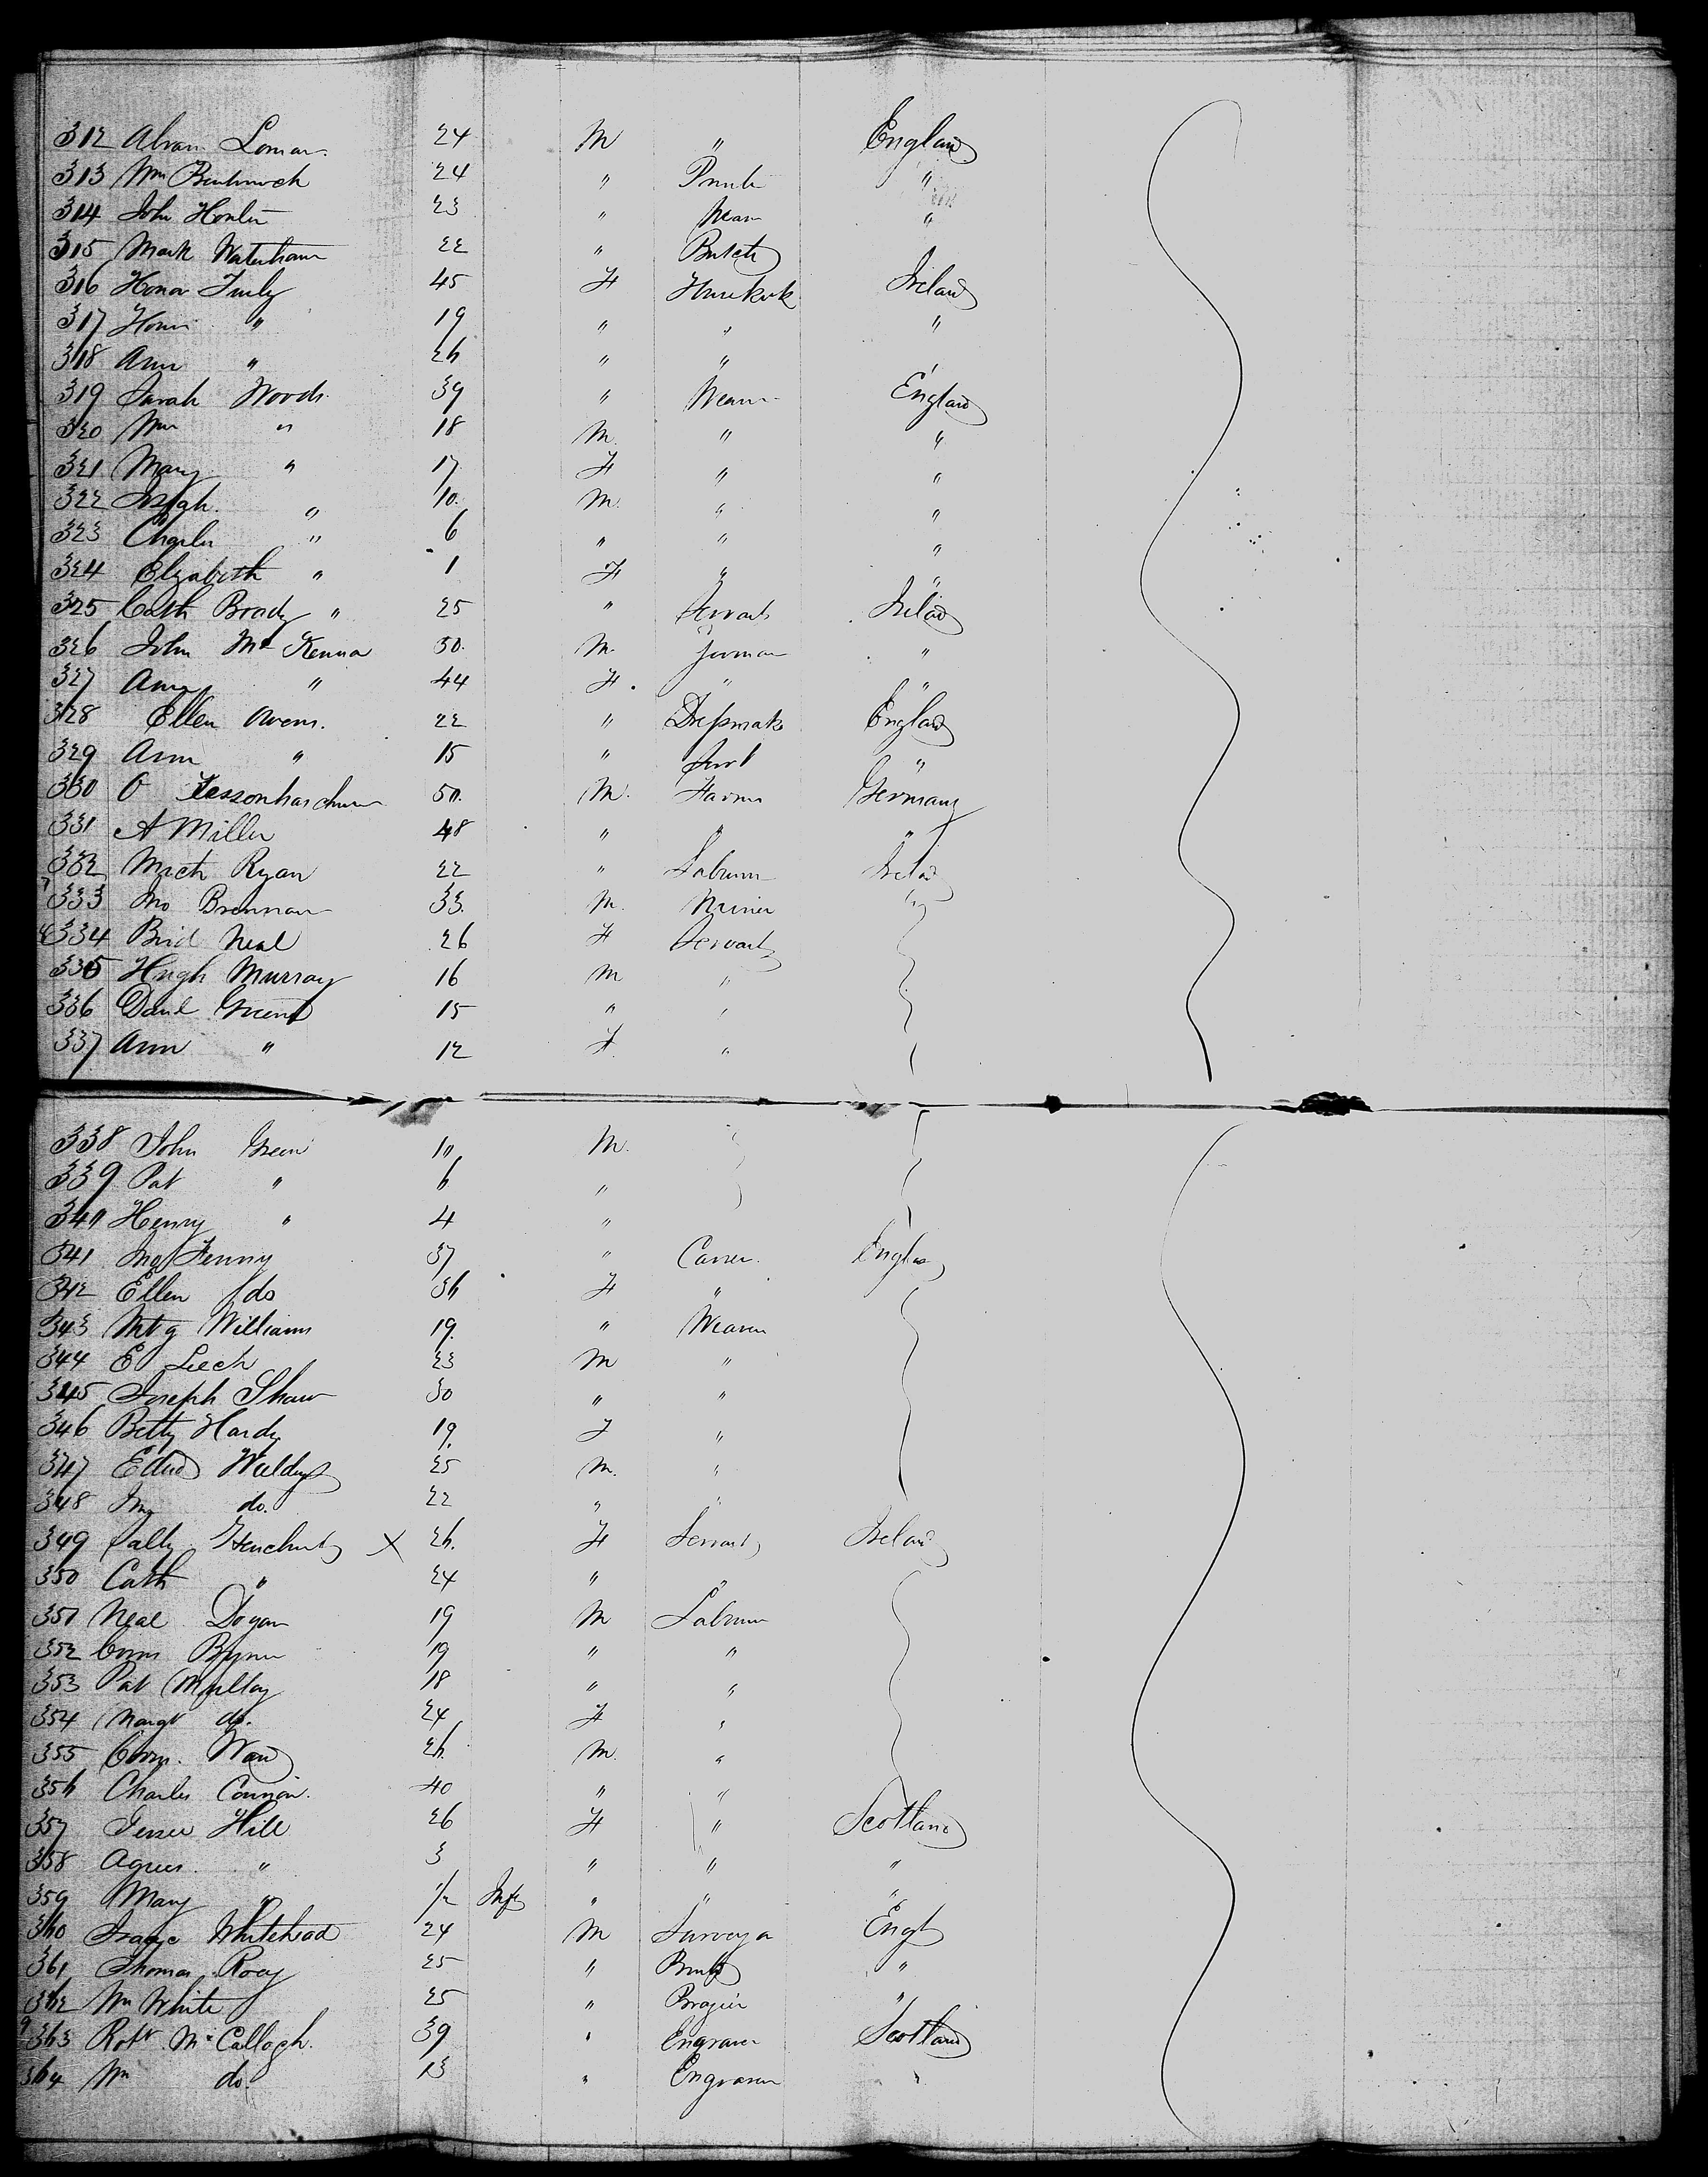 312 Abram Lomax 24 M " England
313 Wm 24 " "
314 John 23 " Weavr "
315 Mark Waterhouse 22 " Butch
316 Honor 45 F Ireland
317 " 19 " " "
318 Ann " 26 " "
319 Sarah Woods 39 " Weavr England
320 Wm " 18 M " "
321 Mary " 17 F " "
322 Joseph " 10 M " "
323 Charles " 6 " " "
324 Elizabeth " 1 F " "
325 Cath Brady " 25 " Servant Ireland
326 John Mc Kenna 30 M "
327 " 44 F " "
328 Ellen Owens 22 " Dressmake England
329 Ann " 15 " Servt "
330 O 50 M Farmr Germany
331 A Miller 48 " " "
332 Mich Ryan 22 " Labourer Ireland
333 Jno Brennan 33 M "
334 Brid Neal 26 F Servant
335 Hugh Murray 16 M "
336 Danl Green 15 " "
337 Ann " 12 F "
338 John Green 10 M
339 Pat " 6 "
340 Henry " 4 "
341 Jno Fenny 37 " England
342 Ellen do 36 F "
343 Mtg Williams 19 " Weaver
344 E Leech 23 M "
345 Joseph Shaw 30 " "
346 Betty Hardy 19 F "
347 Edwd 25 M "
348 do. 22 " "
349 Sally X 26 F Servant Ireland
350 Cath " 24 " "
351 Neal Dogan 19 M Labourer
352 Corns Byrne 19 " "
353 Pat Mulloy 18 " "
354 Margt do. 24 F "
355 Corns. Ward 26 M "
356 Charles Connor 40 " "
357 Hill 26 F " Scotland
358 Agnes " 3 " " "
359 Mary " 1/2 Inft " " "
360 Isaac Whitehead 24 M Surveyor Engd
361 Thomas Roey 25 " "
362 Wm White 25 " Brazier "
363 Robt McCallogh 39 " Engraver Scotland
364 Wm do. 13 " Engraver "